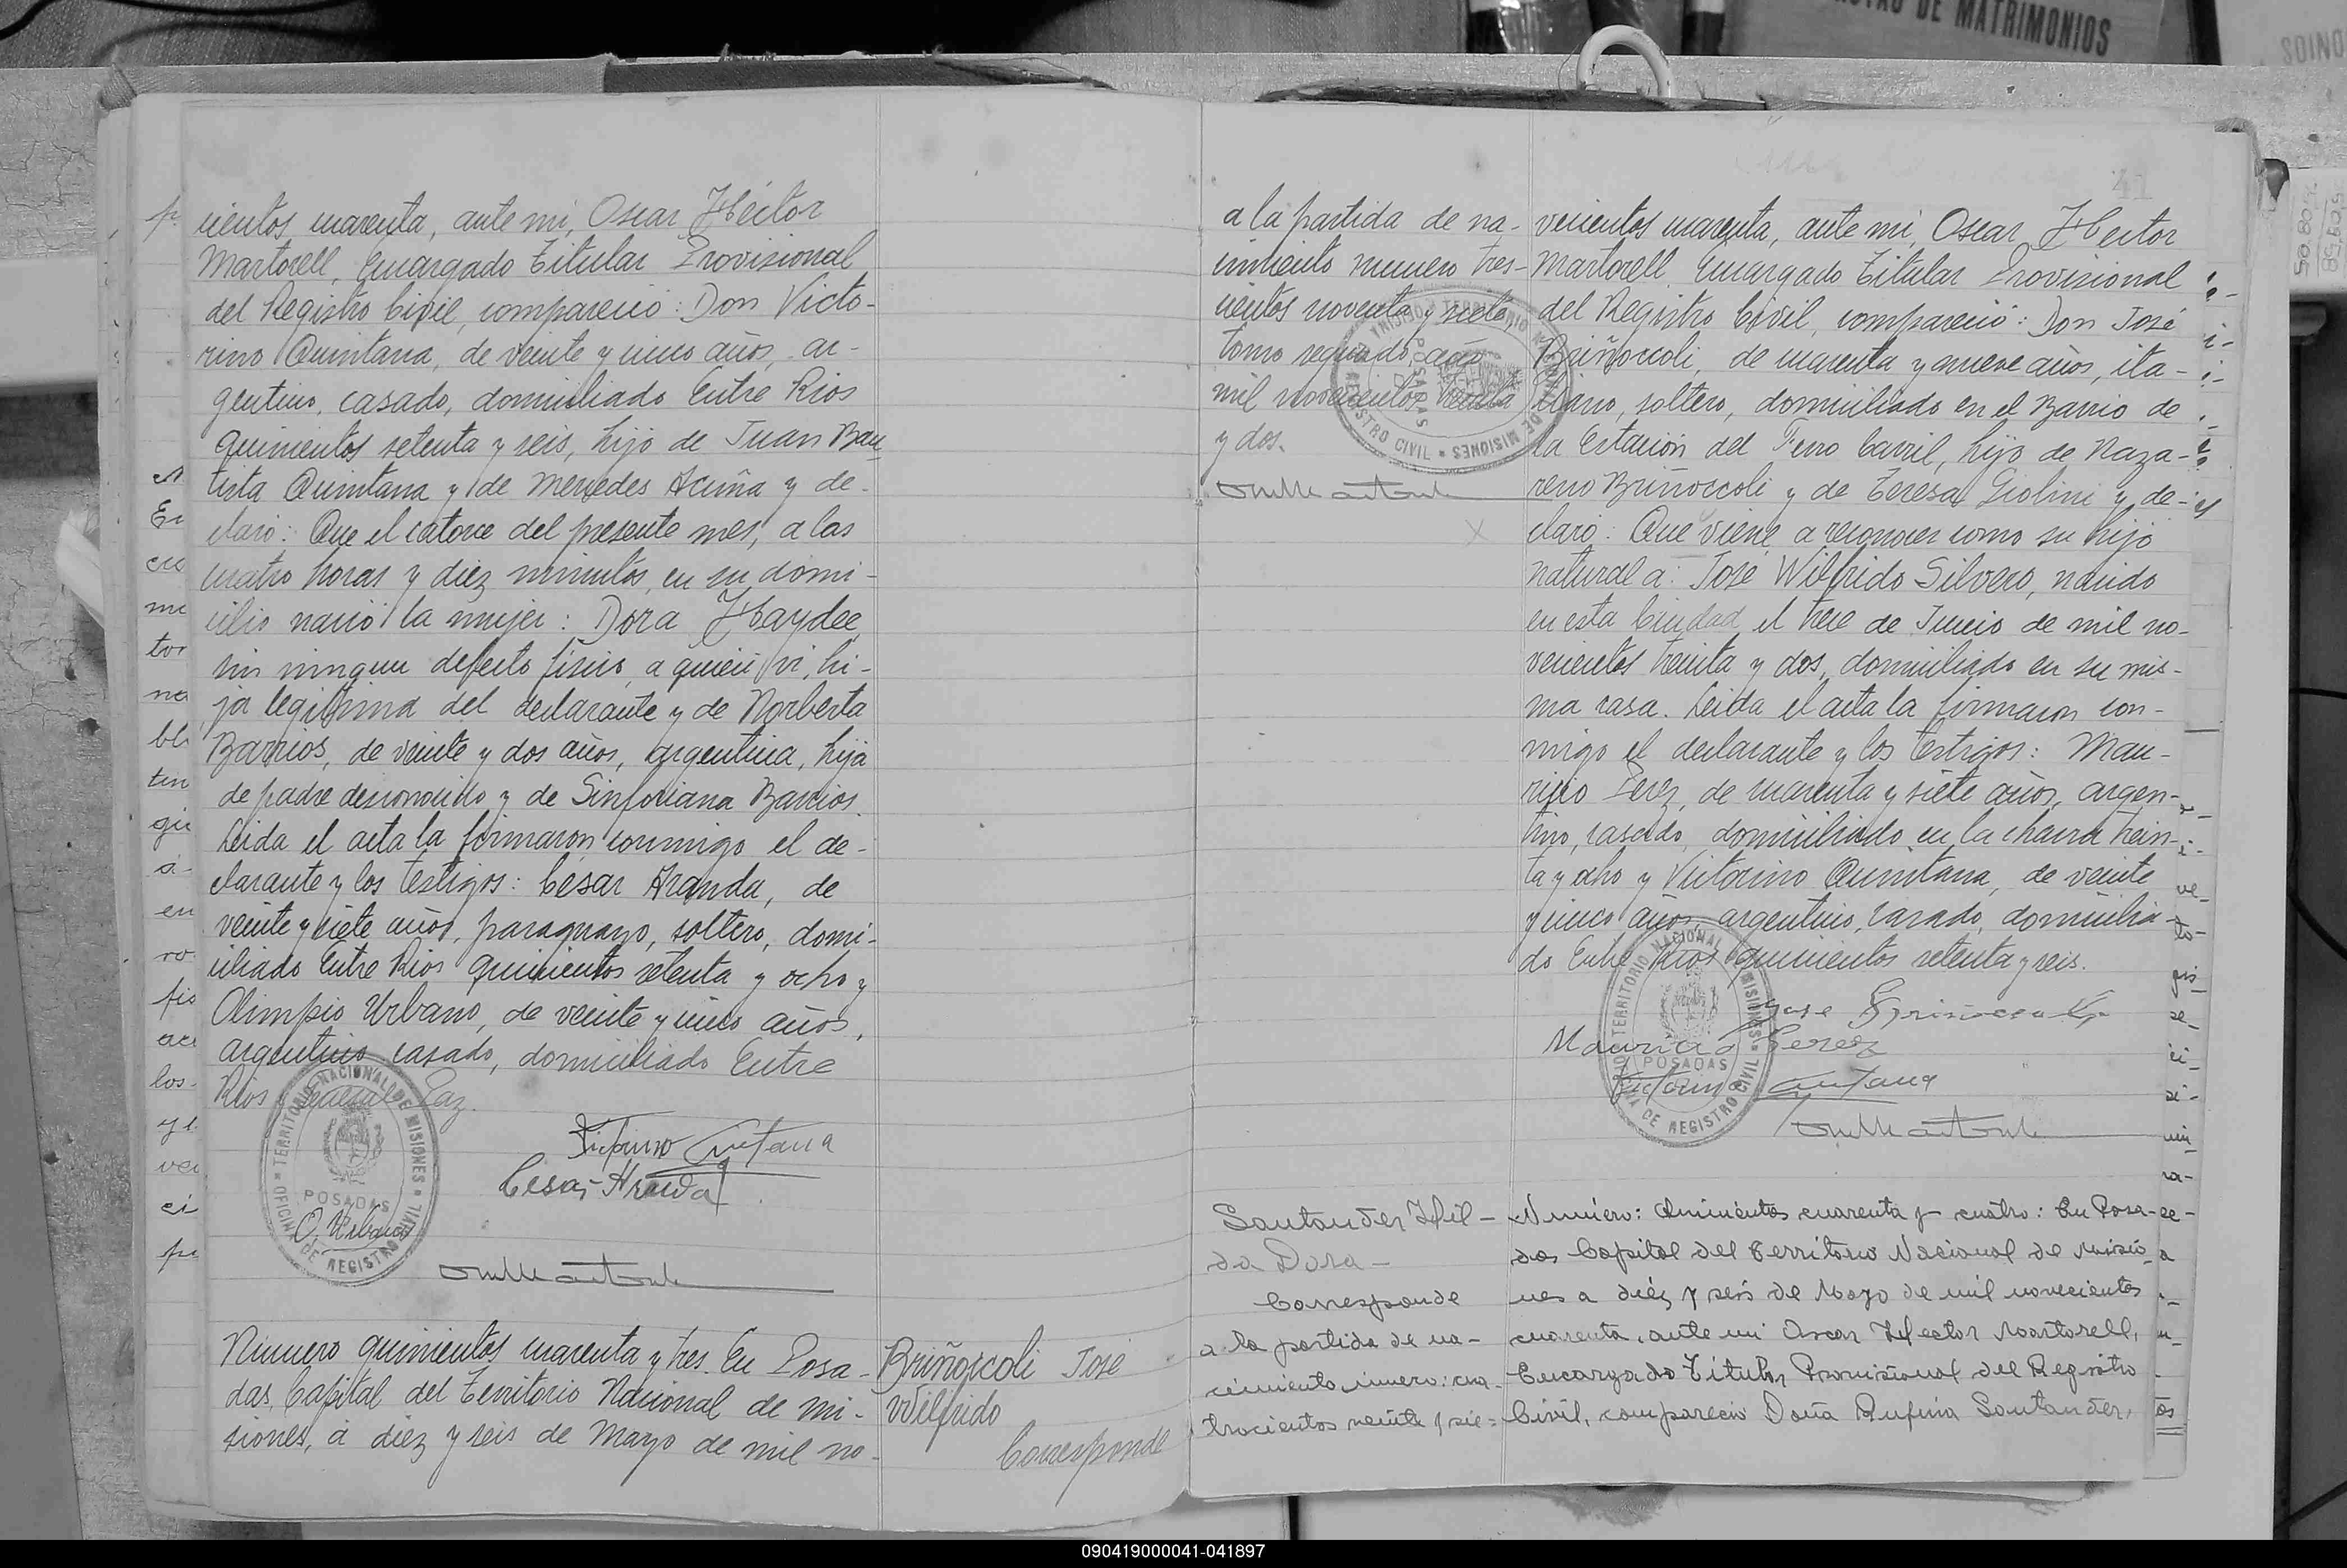 cientos cuarenta, ante mi, Oscar Héctor
Martorell, Encargado Titular Provisional
del Registro Civil, compareció: Don Victo-
rino Quintana, de veinte y cinco años, ar-
gentino, casado, domiciliado Entre Rios
quinientos setenta y seis, hijo de Juan Bau
tista Quintana y de Mercedes Acuña y de-
claró: Que el catorce del presente mes, a las
cuatro horas y diez minutos, en su domi-
cilio nació la mujer: Dora Haydee
sin ningun defecto fisico, a quien vi, hi-
ja legitima del declarante y de Norberta
Barrios, de veinte y dos años, argentina, hija
de padre desconocido y de Sinforiana Barrios.
Leida el acta la firmaron conmigo el de-
clarante y los testigos: Cesar Aranda, de
veinte y siete años, paraguayo, soltero, domi-
ciliado Entre Rios quinientos setenta y ocho y
Olimpio Urbano, de veinte y cinco años,
argentino casado, domiciliado Entre
Rios y General Paz.
TERRITORIO NACIONAL DE MISIONES
OFICINA DE REGISTRO CIVIL
POSADAS
Victorino Quintana
Cesar Aranda
O. Urbano
Numero quinientos cuarenta y tres. En Posa-
das, Capital del Territorio Nacional de Mi-
siones, á diez y seis de Mayo de mil no-
Briñoccoli José
Wilfrido
Corresponde
a la partida de na-
cimiento numero tres-
cientos noventa y siete,
tomo segundo, año
mil novecientos treinta
y dos.
41
vecientos cuarenta, ante mi, Oscar Hector
Martorell, Encargado Titular Provisional
del Registro Civil, compareció: Don José
Briñoccoli, de cuarenta y nueve años, ita-
liano, soltero, domiciliado en el Barrio de
la Estación del Ferro Carril, hijo de Naza-
reno Briñoccoli y de Teresa Giolini y de-
claró: Que viene a reconocer como su hijo
natural a: José Wilfrido Silvero, nacido
en esta Ciudad el trece de Junio de mil no-
vecientos treinta y dos, domiciliado en su mis-
ma casa. Leida el acta la firmaron con-
migo el declarante y los testigos: Mau-
ricio Perez, de cuarenta y siete años, argen-
tino, casado, domiciliado en la chacra trein-
ta y ocho y Victorino Quintana, de veinte
y cinco años, argentino, casado, domicilia-
do Entre Rios quinientos setenta y seis.
Jose Briñoccoli
Mauricio Perez
Victorino Quintana
TERRITORIO NACIONAL DE MISIONES
OFICINA DE REGISTRO CIVIL
POSADAS
Santander Hil-
da Dora-
Corresponde
a la partida de na-
cimiento número: cua-
trocientos veinte y sie-
Número: Quinientos cuarenta y cuatro: En Posa-
das Capital del Territorio Nacional de Misio
nes a diéz y seis de Mayo de mil novecientos
cuarenta, ante mi Oscar Hector Martorell,
Encargado Titular Provisional del Registro
Civil, compareció Doña Rufina Santander,
DE MATRIMONIOS
090419000041-041897